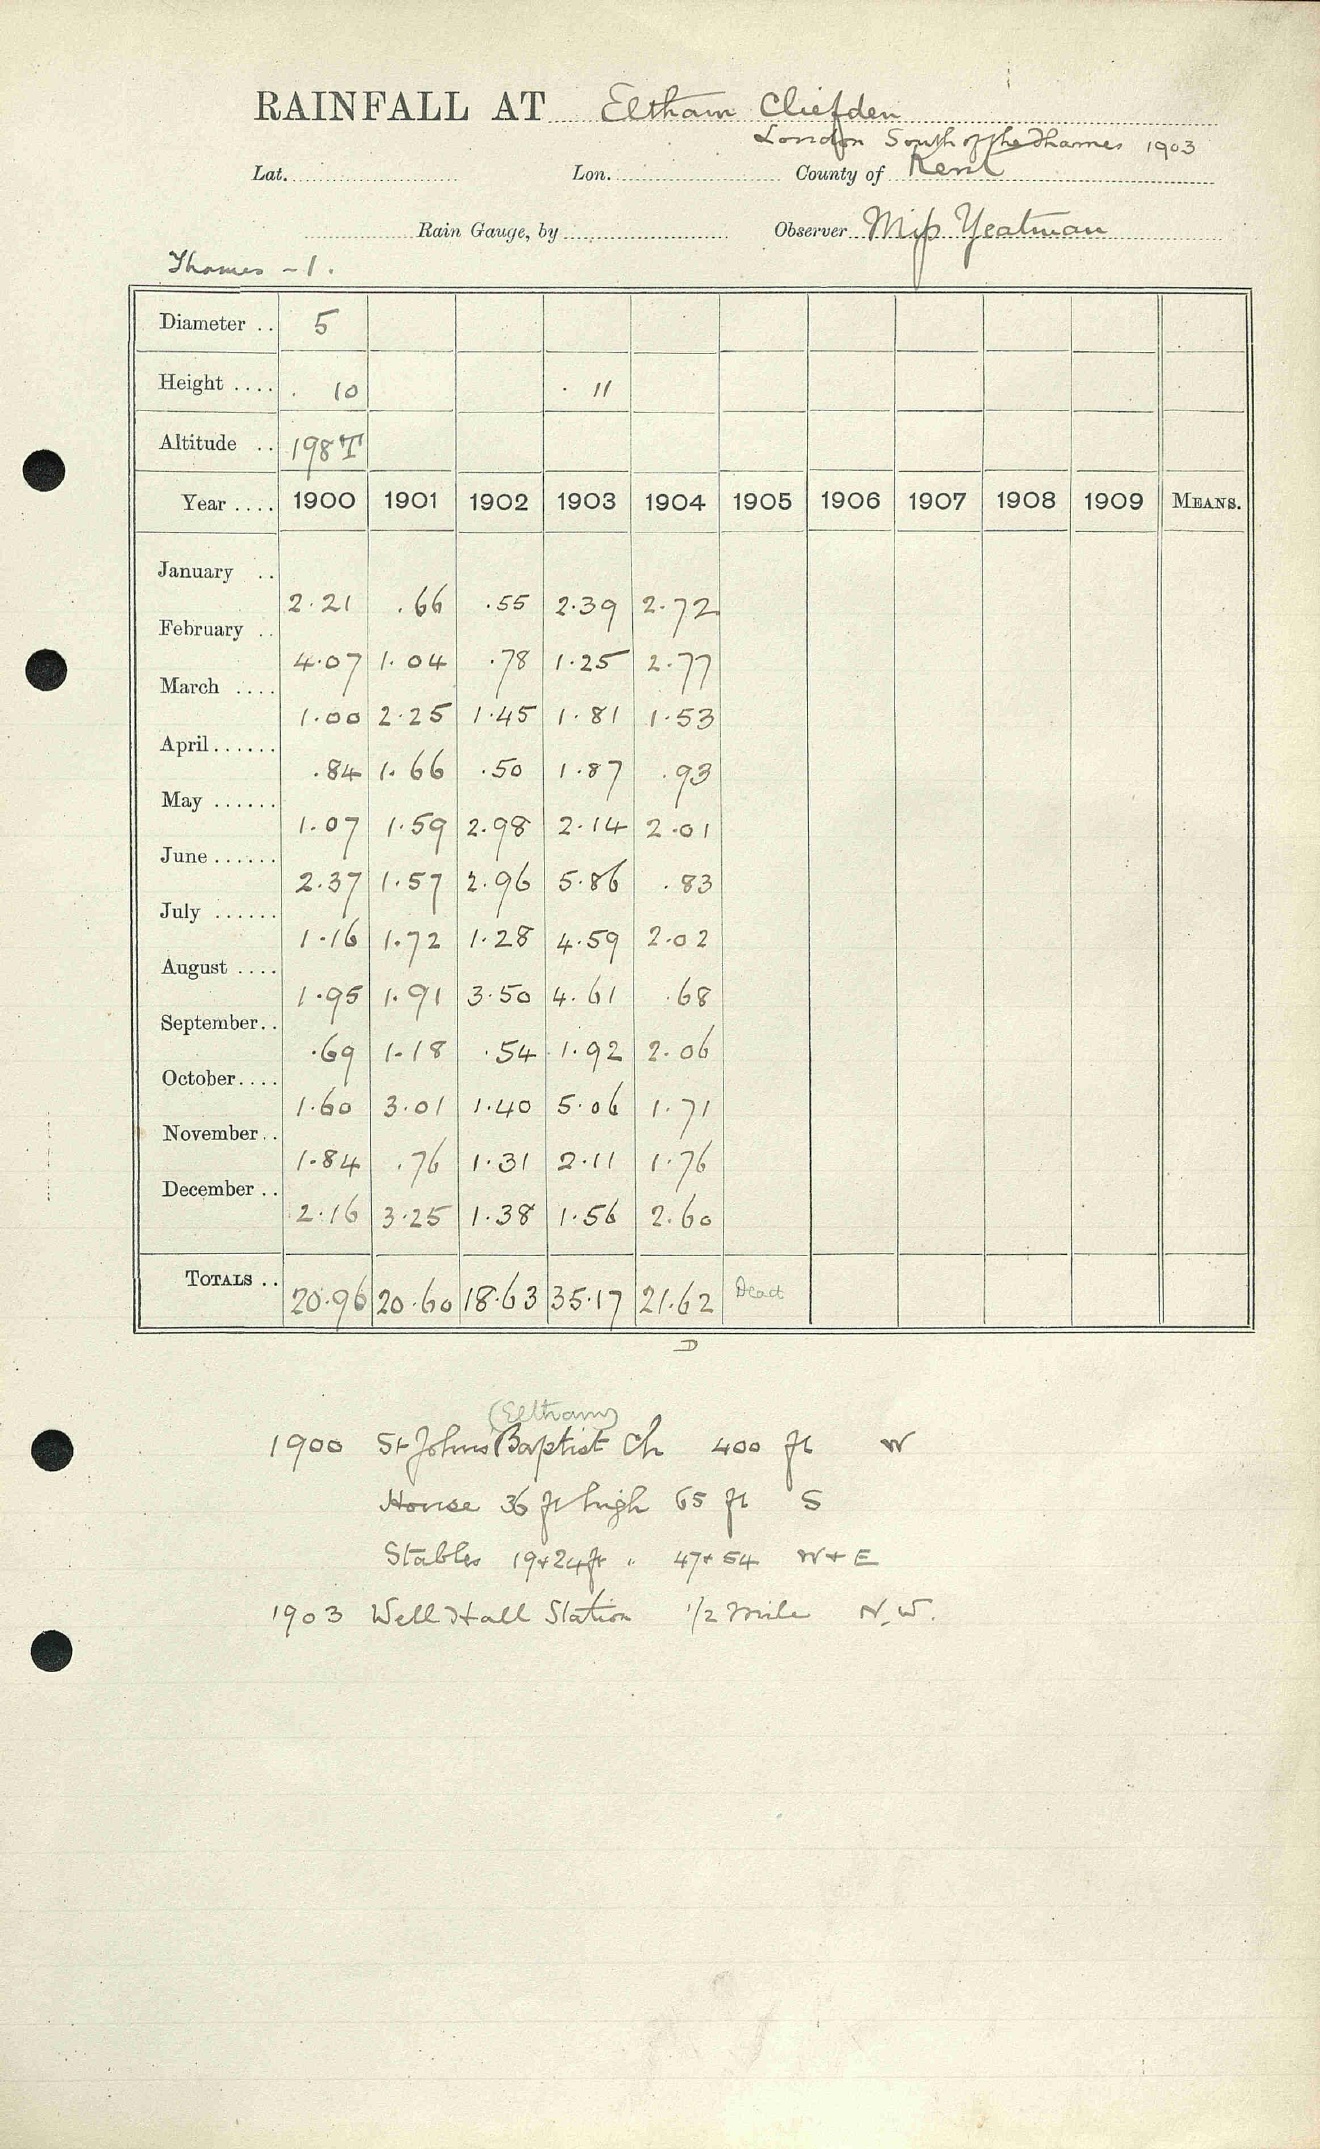 RAINFALL AT Eltham Cliefden
London South of the Thames 1903
Lat. Lon. County of Kent
Rain Gauge, by Observer Miss Yeatman
Thames - 1.
Diameter .. 5
Height .... 10 11
Altitude .. 198 T
Year .... 1900 1901 1902 1903 1904 1905 1906 1907 1908 1909 MEANS.
January .. 2.21 .66 .55 2.39 2.72
February .. 4.07 1.04 .78 1.25 2.77
March .... 1.00 2.25 1.45 1.81 1.53
April ...... .84 1.66 .50 1.87 .93
May ...... 1.07 1.59 2.98 2.14 2.01
June ...... 2.37 1.57 2.96 5.86 .83
July ...... 1.16 1.72 1.28 4.59 2.02
August .... 1.95 1.91 3.50 4.61 .68
September .. .69 1.18 .54 1.92 2.06
October .... 1.60 3.01 1.40 5.06 1.71
November .. 1.84 .76 1.31 2.11 1.76
December .. 2.16 3.25 1.38 1.56 2.60
TOTALS .. 20.96 20.60 18.63 35.17 21.62 Dead
D
(Eltham)
1900 St Johns Baptist Ch 400 ft W
House 36 ft high 65 ft S
Stables 19 + 24 ft " 47 + 54 W + E
1903 Well Hall Station 1/2 mile N.W.